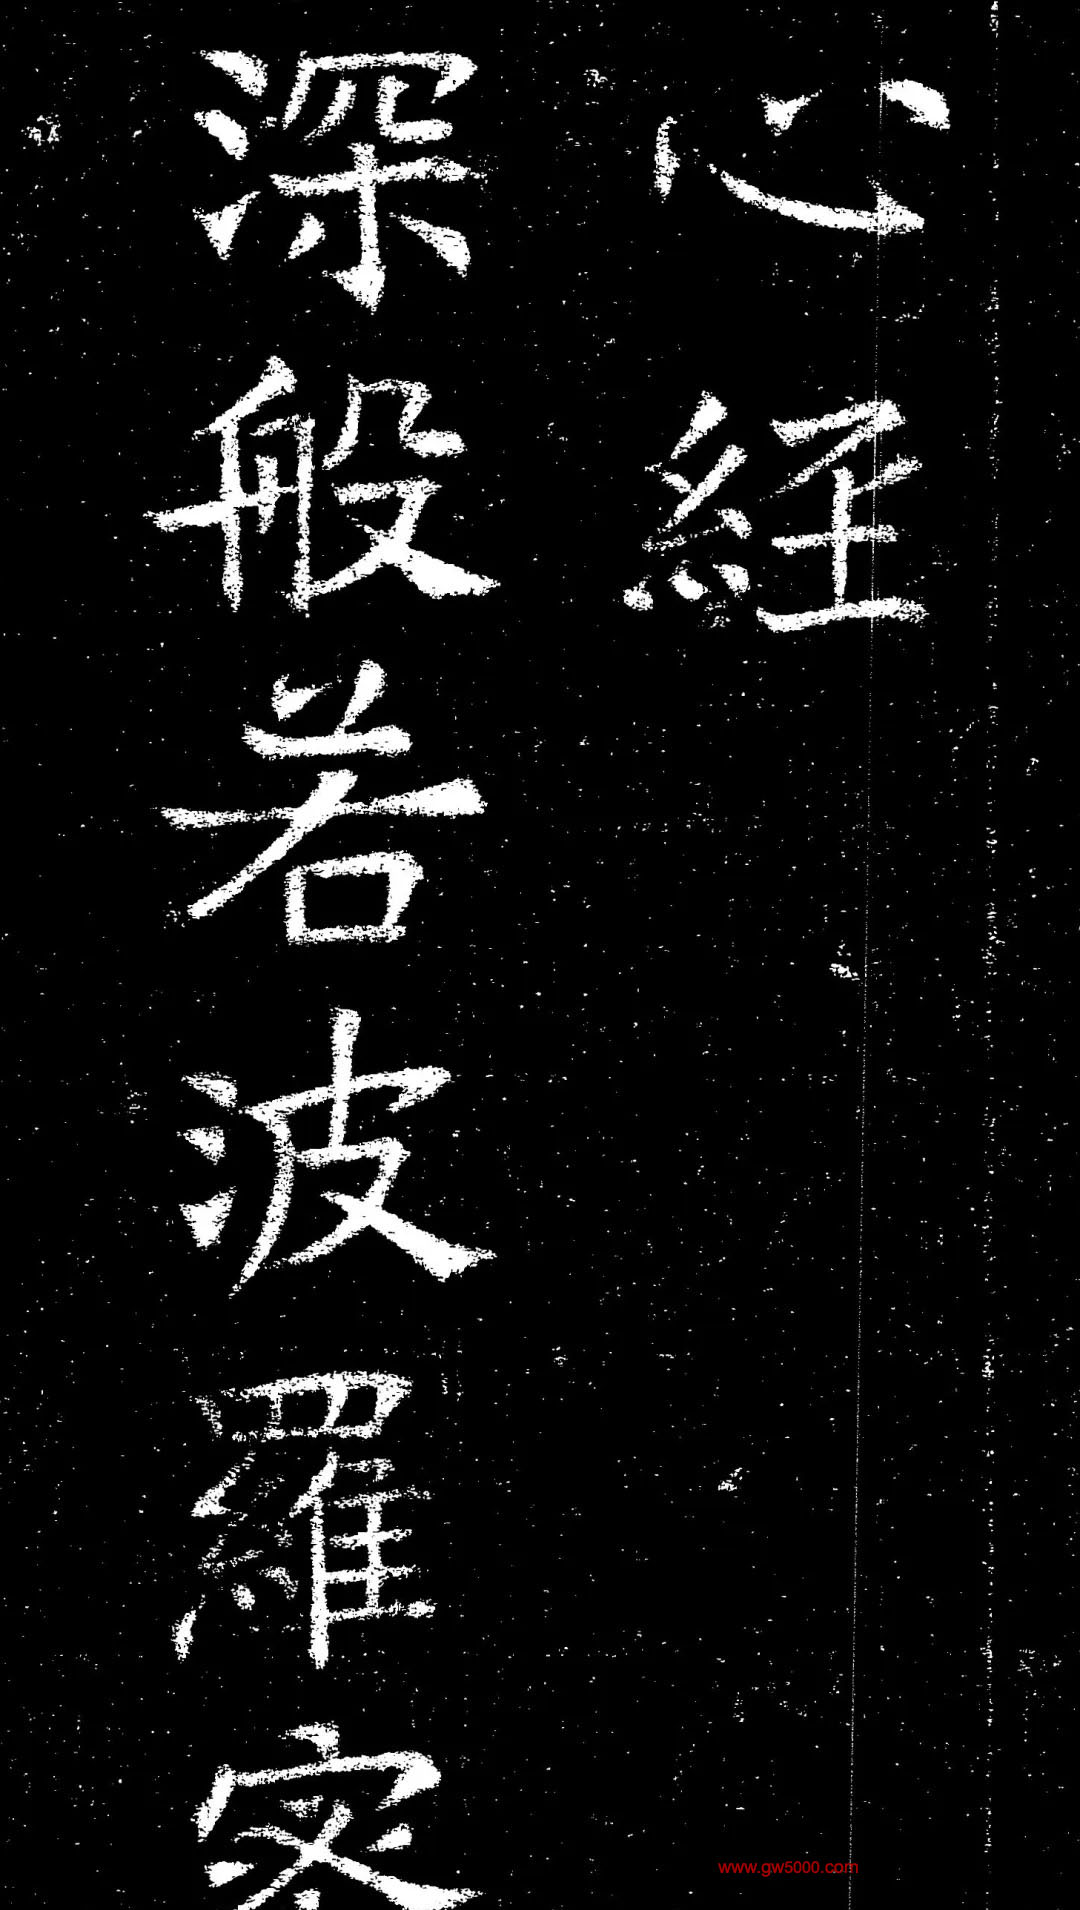 心經
深般若波羅密
www.gw5000.com